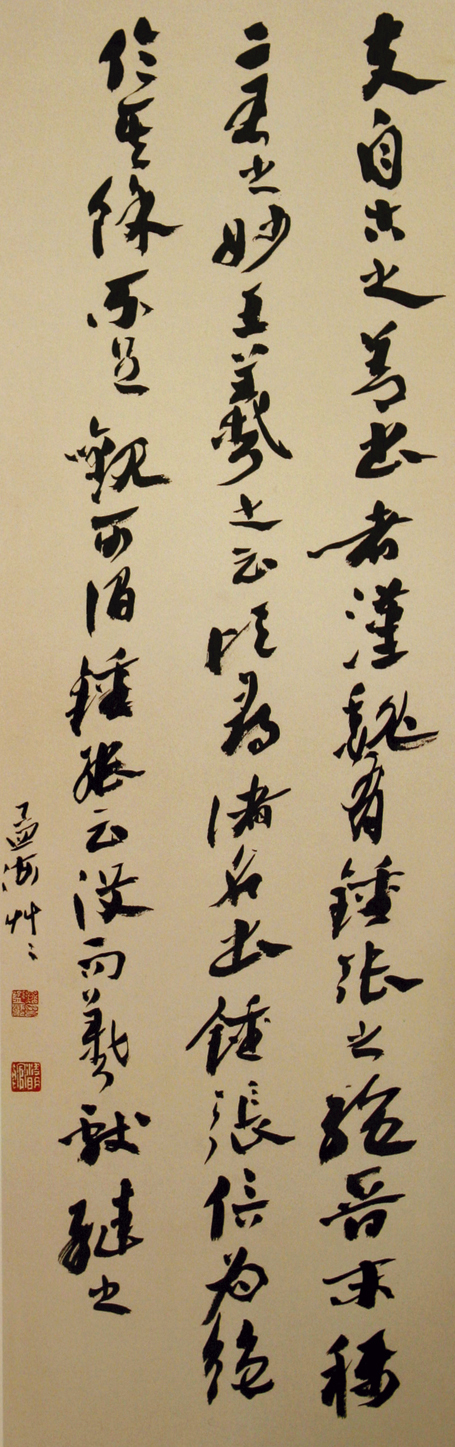 夫自古之善書者漢魏有鍾張之絕晉末稱
二王之妙王羲之云頃尋諸名書鍾張信為絕
倫其餘不足觀可謂鍾張云沒而羲獻繼之
孟海艸〻